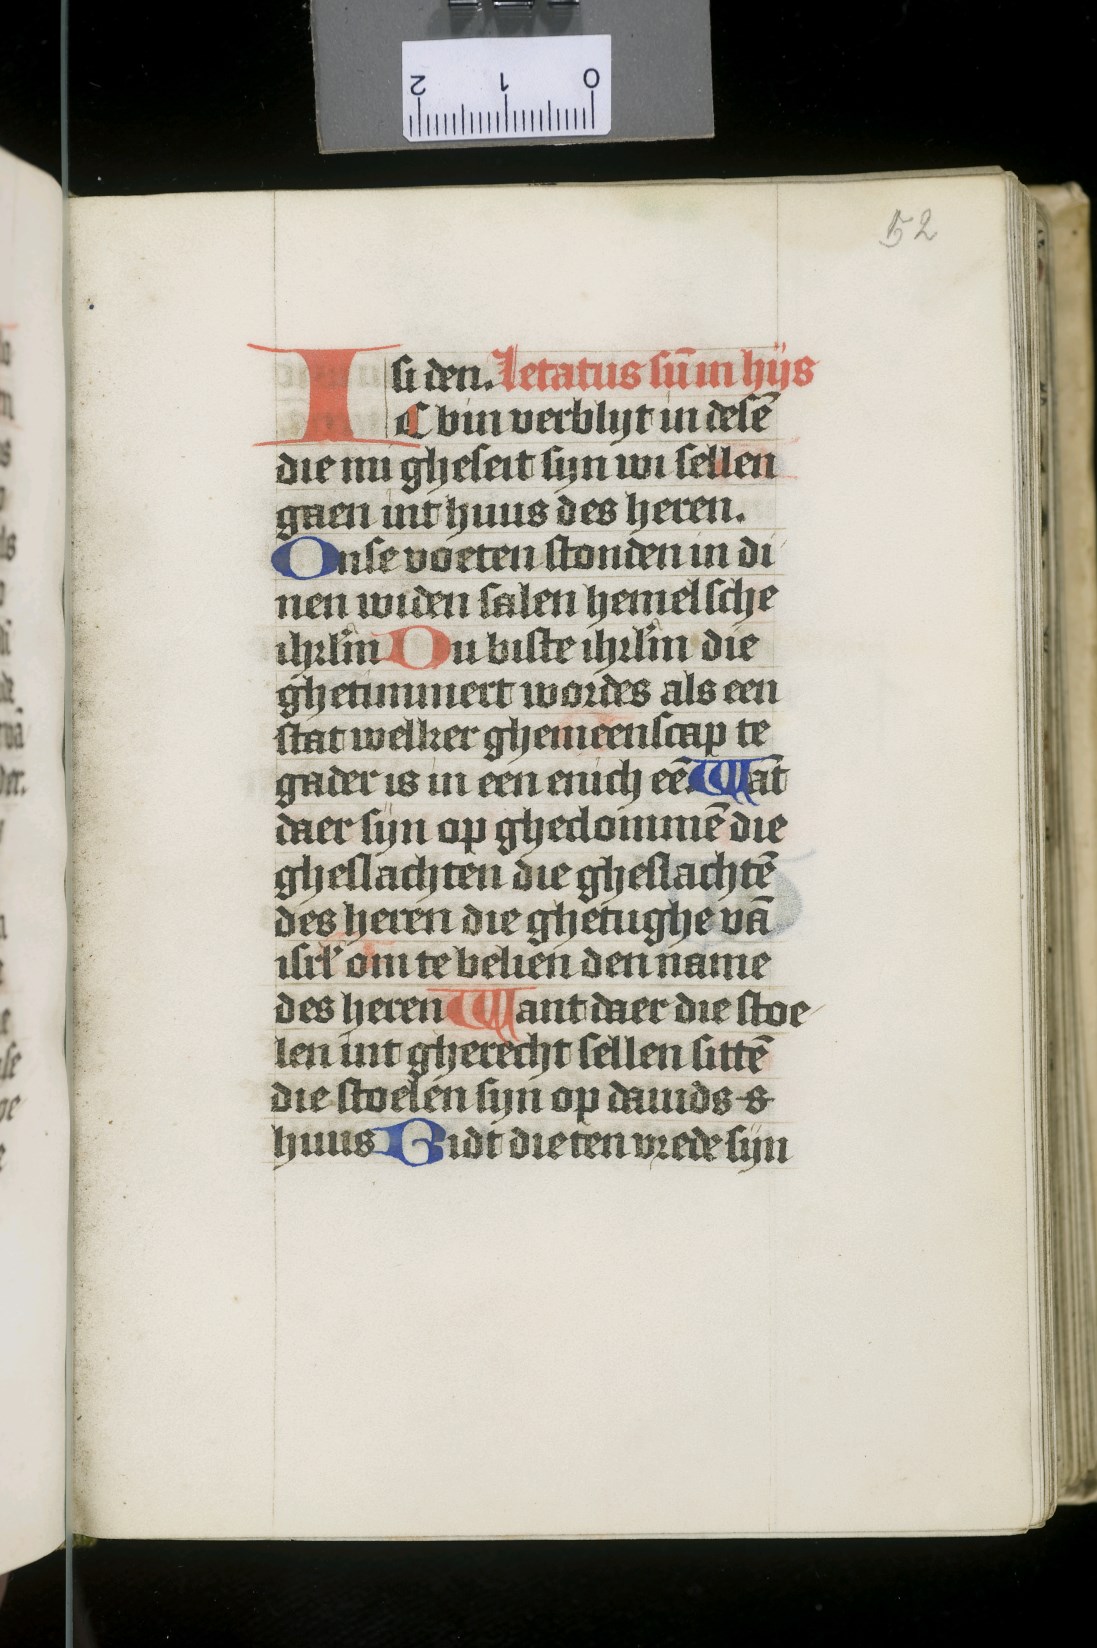 52
si den. Letatus sū in hijs
IC bin verblijt in desē
die mi gheseit sijn wi sellen
gaen int huus des heren.
Onse voeten stonden in di
nen widen salen hemelsche
ihrl'm Du biste ihrl'm die
ghetimmert wordes als een
stat welker ghemeenscap te
gader is in een enich eē Wāt
daer sijn op gheclommē die
gheslachten die gheslachtē
des heren die ghetughe vā
isrl' om te belien den name
des heren Want daer die stoe
len int gherecht sellen sittē
die stoelen sijn op dauids s
huus Bidt die ten vrede sijn
2 1 0